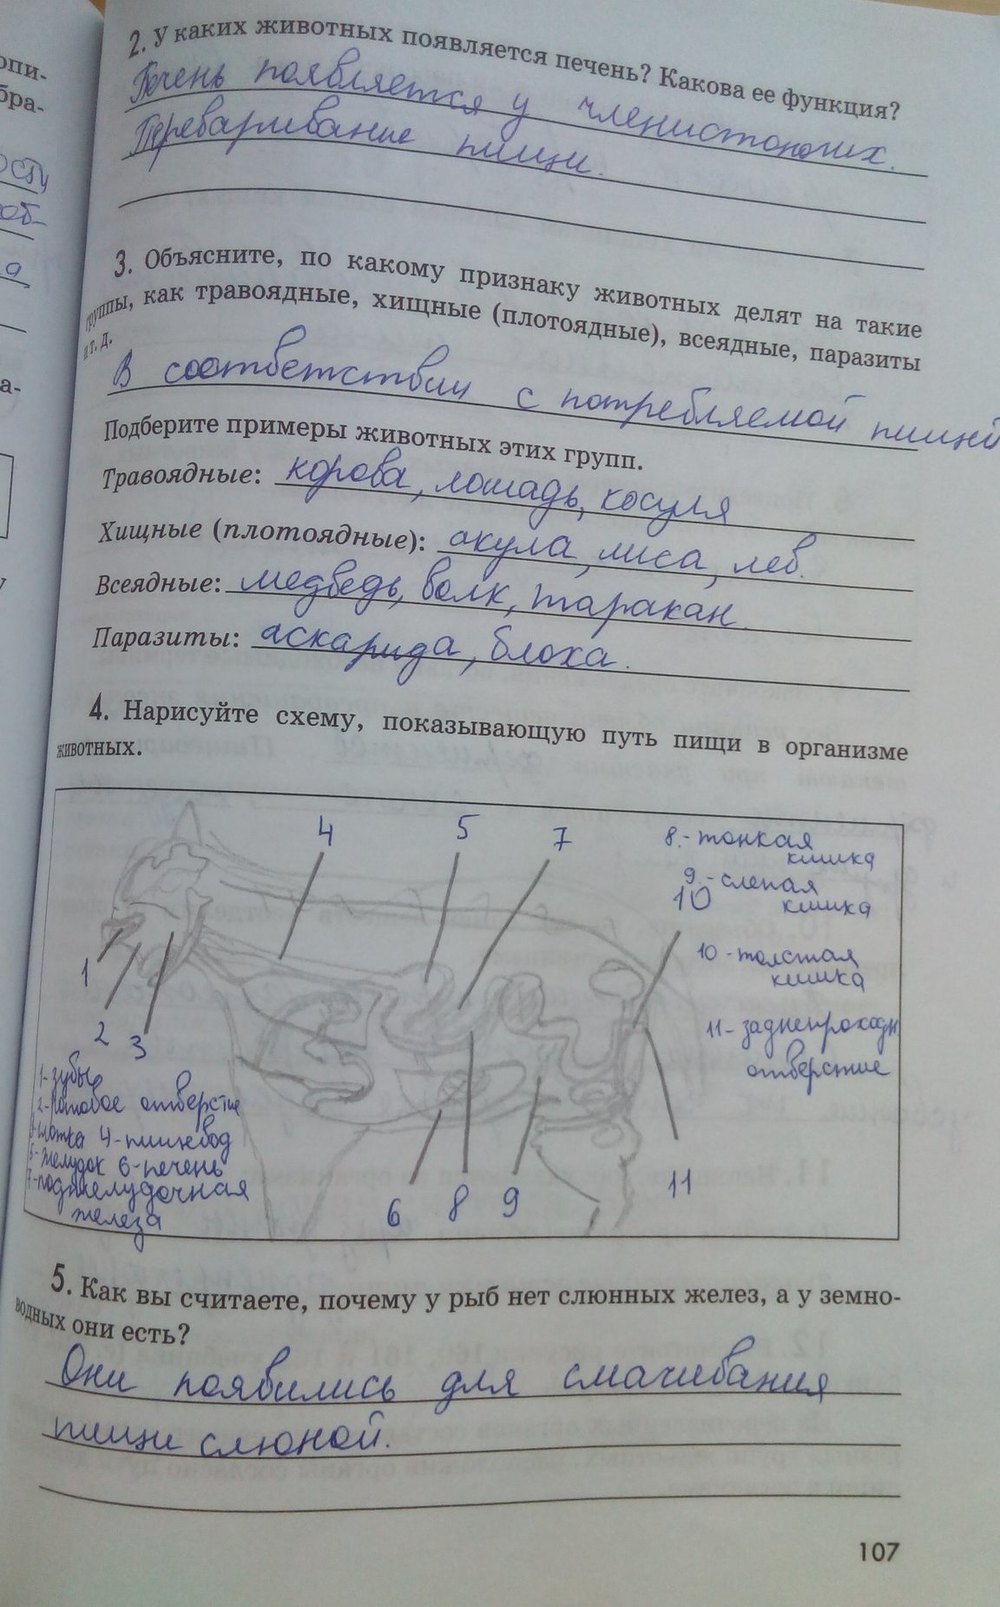 опи-
бра-
2. У каких животных появляется печень? Какова ее функция?
Печень появляется у членистоногих.
Переваривание пищи.
3. Объясните, по какому признаку животных делят на такие
группы, как травоядные, хищные (плотоядные), всеядные, паразиты
и т. д.
В соответствии с потребляемой пищей
Подберите примеры животных этих групп.
Травоядные: корова, лошадь, косуля
Хищные (плотоядные): акула, лиса, лев.
Всеядные: медведь, волк, таракан.
Паразиты: аскарида, блоха.
4. Нарисуйте схему, показывающую путь пищи в организме
животных.
4 5 7
8.- тонкая
кишка
9.- слепая
кишка
10
10 - толстая
кишка
11- заднепроходн
отверстие
1
2 3
1- зубы
2- ротовое отверстие
3- глотка 4- пищевод
5- желудок 6- печень
7- поджелудочная
железа
6 8 9 11
5. Как вы считаете, почему у рыб нет слюнных желез, а у земно-
водных они есть?
Они появились для смачивания
пищи слюной.
107